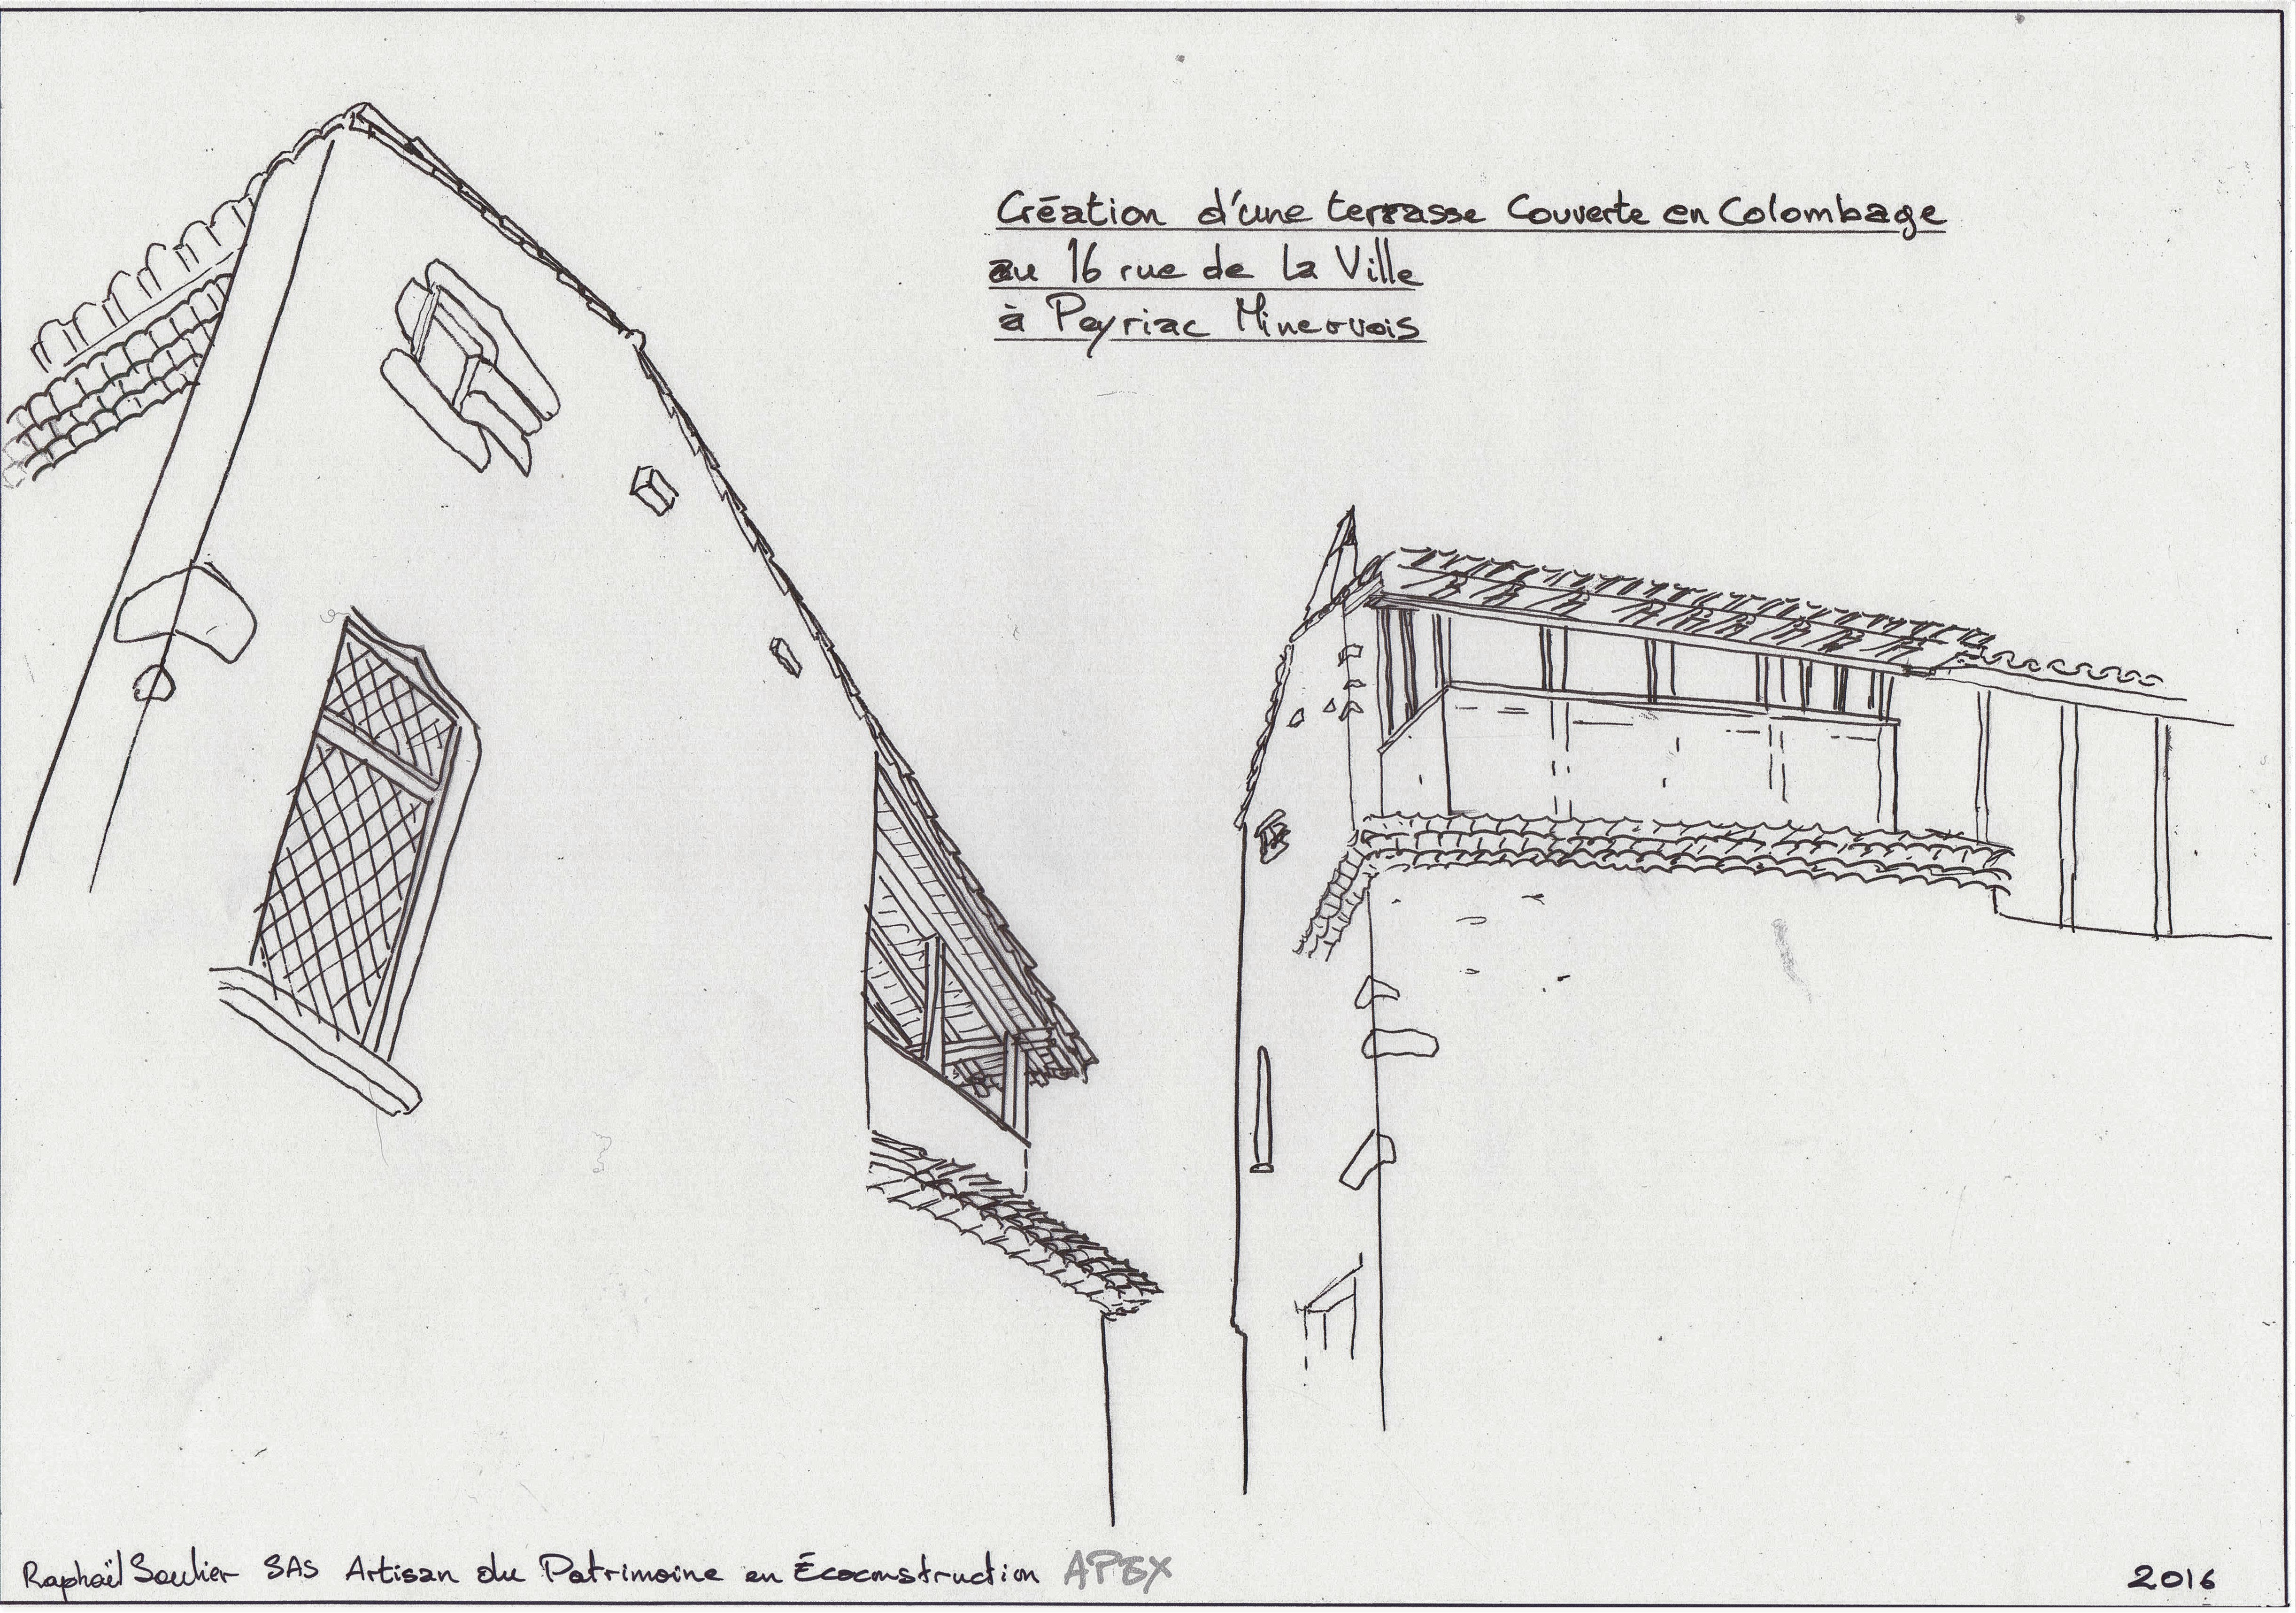 Création d'une terrasse Couverte en Colombage
au 16 rue de la Ville
à Peyriac Minervois
Raphaël Soulier SAS Artisan du Patrimoine en Écoconstruction APEX
2016